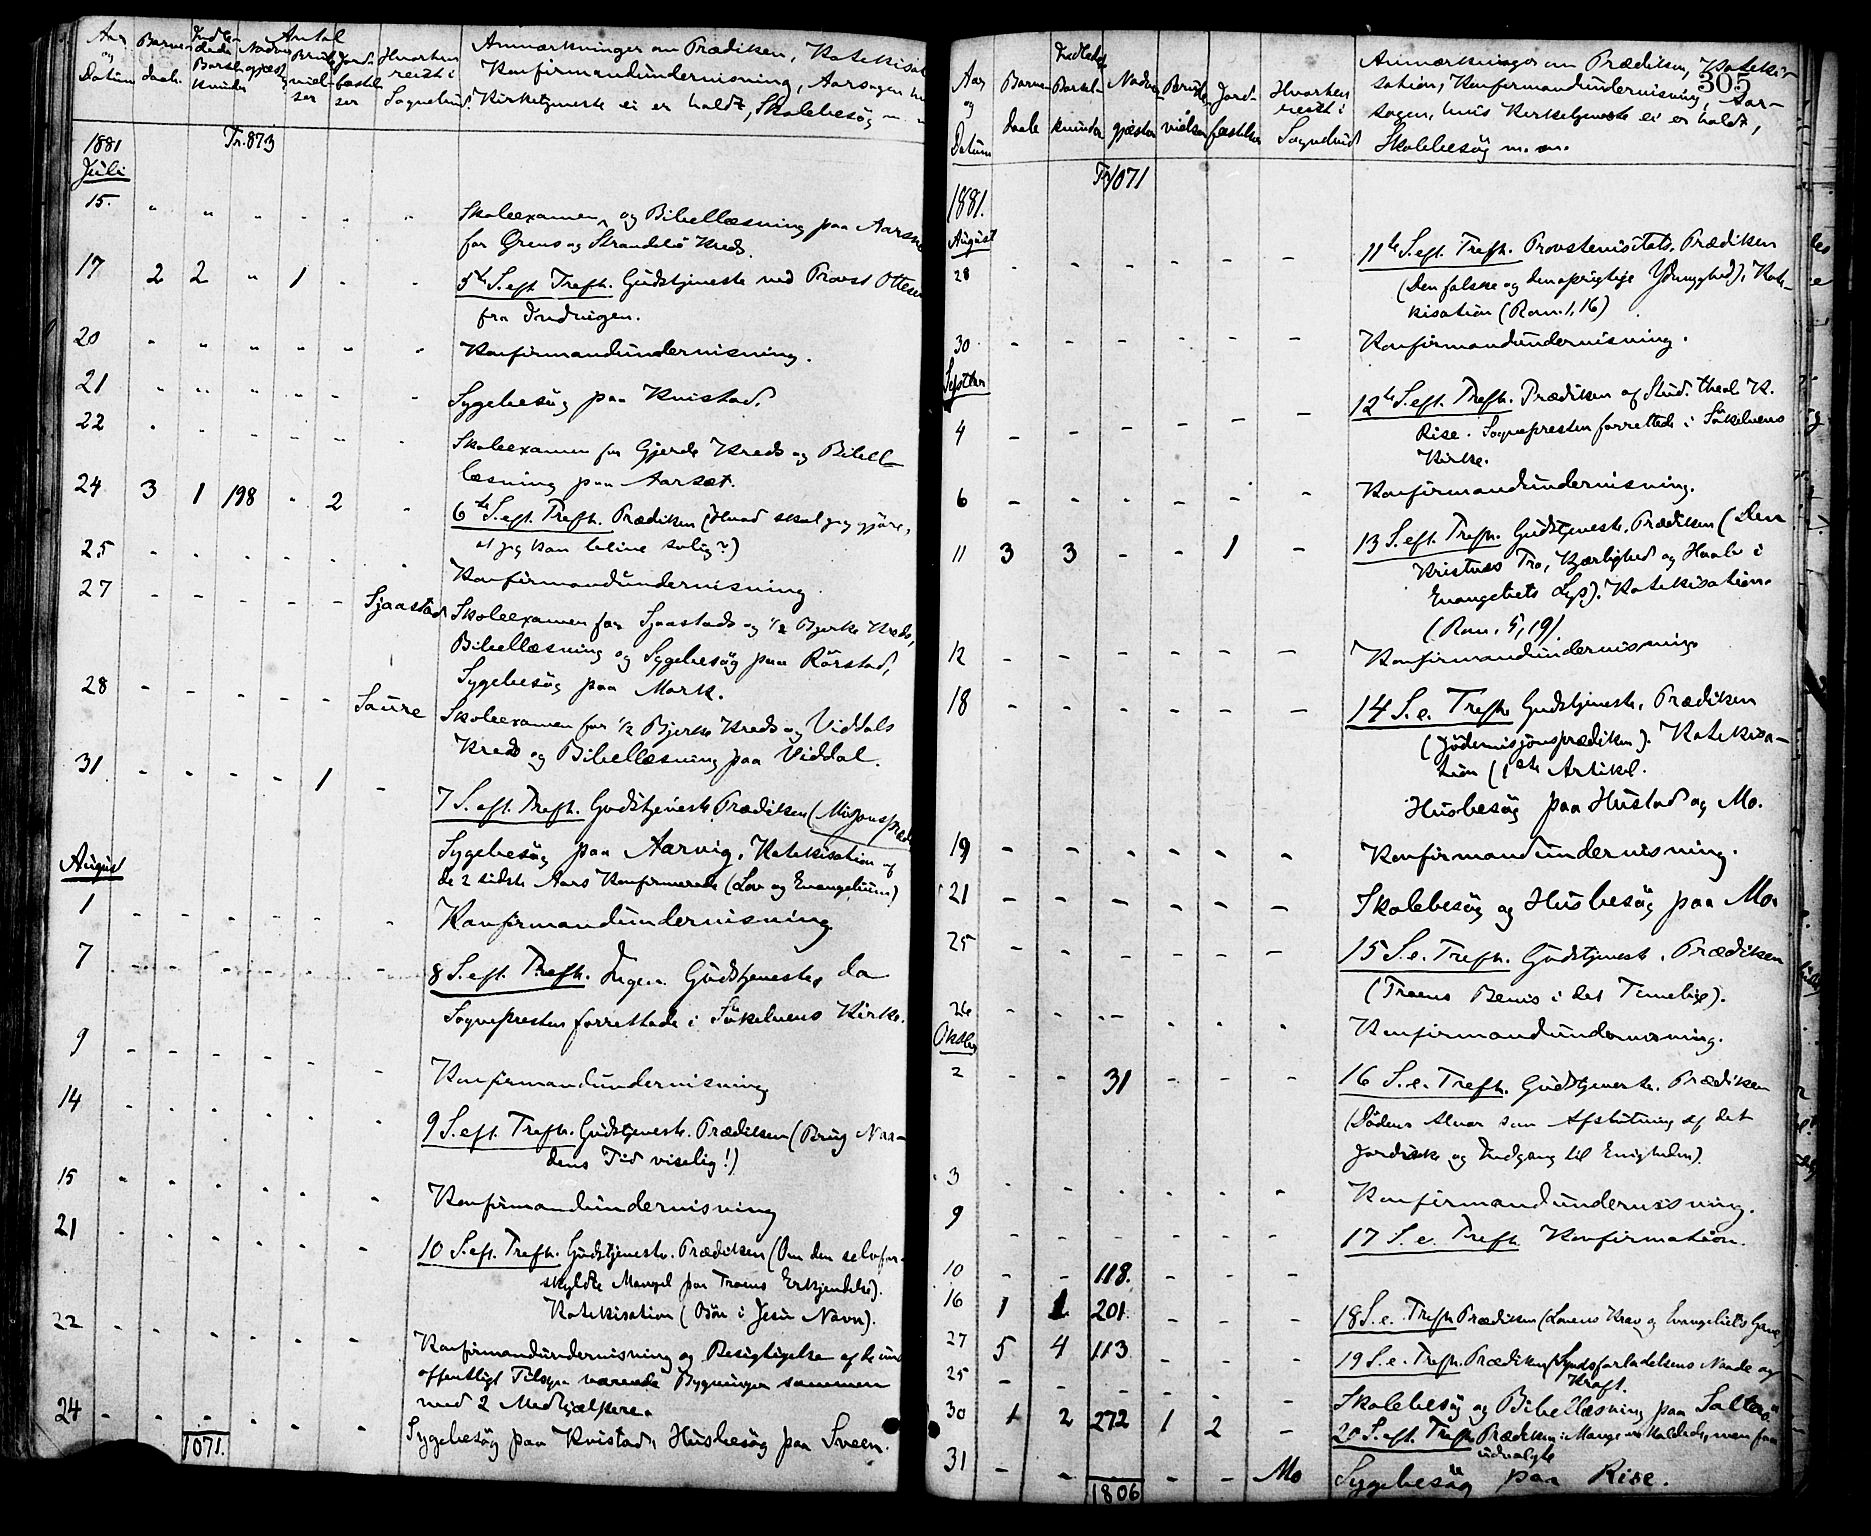 Aar og Datum
Barne- daab.
Indle- dede Barsel- kvinder
Nadver- gjæster
Antal
Brude- viel- ser
Jord- fæstel- ser
Hvorhen reist i Sognebud.
Anmærkninger om Prædiken, Katekisat
Konfirmandundervisning, Aarsagen hv
Kirketjeneste ei er holdt, Skolebesøg m. m
1881 Tr. 873
Juli
15. " " " " " " Skoleexamen og Bibellæsning paa Aars
for Ørens og Strandebø Kreds.
17 2 2 " 1 " " 5te S. eft. Trefh. Gudstjeneste ved Provst Ottesen
fra Indvigen.
20 " " " " " " Konfirmandundervisning.
21 " " " " " " Sygebesøg paa Kvistad.
22 " " " " " " Skoleexamen for Gjerde Kreds og Bibel-
læsning paa Aarsæt.
24 3 1 198 " 2 " 6te S. eft. Trefh. Prædiken (Hvad skal jeg gjøre,
at jeg kan blive salig?)
25 " " " " " " Konfirmandundervisning.
27 - - - - - Sjaastad Skoleexamen for Sjaastads og 1/2 Bjerke Kreds,
Bibellæsning og Sygebesøg paa Rørstad,
Sygebesøg paa Mork.
28 - - - - - Saure Skoleexamen for 1/2 Bjerke Kreds og Viddals
Kreds og Bibellæsning paa Viddal.
31 - - - - 1 - 7 S. eft. Trefh. Gudstjeneste Prædiken (Misjonspræd
Sygebesøg paa Aarvig. Katekisation af
de 2 sidste Aars Konfirmerede (Lov og Evangelium)
August
1 - - - - - - Konfirmandundervisning
7 - - - - - - 8 S. eft. Trefh. Ingen Gudstjeneste, da
Sognepresten forrettede i Søkelvens Kirke.
9 - - - - - - Konfirmandundervisning
14 - - - - - - 9 S. eft. Trefh. Gudstjeneste. Prædiken (Brug Naa-
dens Tid viselig!)
15 - - - - - - Konfirmandundervisning
21 - - - - - - 10 S. eft. Trefh. Gudstjeneste. Prædiken (Om den selvfor-
skyldte Mangel paa Troens Erkjendelse).
Katekisation (Bøn i Jesu Navn).
22 - - - - - - Konfirmandundervisning og Besigtigelse af de und
offentligt Tilsyn værende Bygninger sammen
med 2 Medhjælpere.
24 - - - - - - Sygebesøg paa Kvistad, Husbesøg paa Sveen.
1071.
305
Aar og Datum
Barne- daab
Indledede Barsel- kvinder
Nadver- gjæster
Brude- vielser
Jord- fæstelser
Hvorhen reist i Sognebud
Anmærkninger om Prædiken, Kateki-
sation, Konfirmandundervisning, Aar-
sagen, hvis Kirketjeneste ei er holdt,
Skolebesøg m. m.
Tr. 1071
1881.
August
28 - - - - - - 11te S. eft. Trefh. Provstevisitats. Prædiken
(Den falske og den oprigtige Ydmyghed). Kate-
kisation (Rom. 1, 16)
30 - - - - - - Konfirmandundervisning.
Septbr
4 - - - - - - 12te S. eft. Trefh. Prædiken af Stud. theol. K.
Rise. Sognepresten forrettede i Søkelvens
Kirke.
6 - - - - - - Konfirmandundervisning.
11 3 3 - - 1 - 13 S. eft. Trefh. Gudstjeneste. Prædiken (Den
Kristnes Tro, Kjærlighed og Haab i
Evangeliets Lys). Katekisation
(Rom. 5, 19).
12 - - - - - - Konfirmandundervisning
18 - - - - - - 14 S. e. Trefh. Gudstjeneste. Prædiken
(Jødemisjonsprædiken). Katekisa-
tion (1ste Artikel.
Husbesøg paa Hustad og Mo.
19 - - - - - - Konfirmandundervisning.
21 - - - - - - Skolebesøg og Husbesøg paa Mo.
25 - - - - - - 15 S. e. Trefh. Gudstjeneste. Prædiken
(Troens Bevis i det Timelige).
26 - - - - - - Konfirmandundervisning.
Oktober
2 - - 31 - - - 16 S. e. Trefh. Gudstjeneste. Prædiken
(Dødens Alvor som Afslutning af det
Jordiske og Indgang til Evigheden).
3 - - - - - - Konfirmandundervisning.
9 - - - - - - 17 S. e. Trefh. Konfirmation.
10 - - 118. - - -
16 1 1 201 - - - 18 S. e. Trefh. Prædiken (Lovens Krav og Evangeliets Gave)
27 5 4 113 - - - 19 S. e. Trefh. Prædiken (Syndsforladelsens Naade og
Kraft.
25 - - - - - - Skolebesøg og Bibellæsning paa
30 1 2 272 1 2 - 20 S. eft. Trefh. Prædiken: Mange ere kaldede, men faa
udvalgte
31 - - - - - Mo Sygebesøg paa Rise.
1806